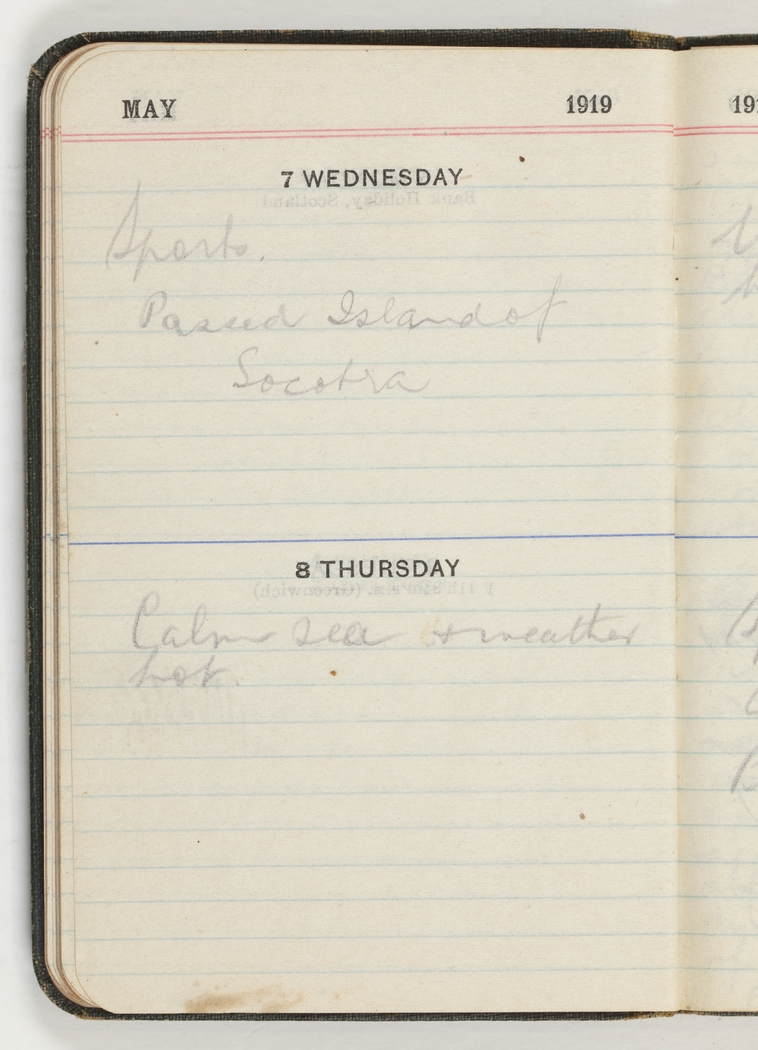 MAY 1919
7 WEDNESDAY
Sports.
Passed Island of
Socotra
8 THURSDAY
Calm sea & weather
hot.